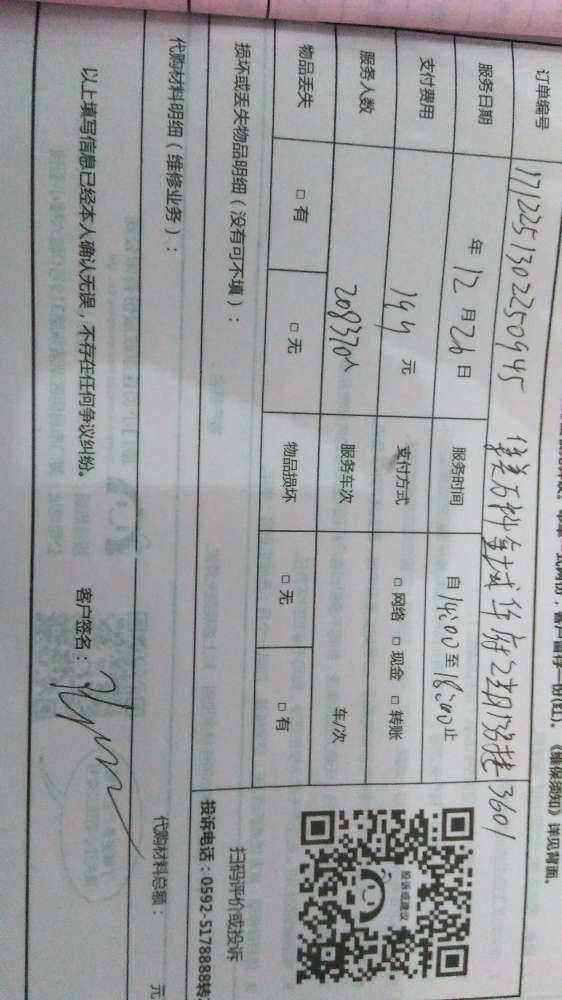 《维保须知》详见背面。
订单编号 1712251302250945 3601
服务日期 年 12 月 26 日 服务时间 自 14:00 至 18:00 止
支付费用 199 元 支付方式 □ 网络 □ 现金 □ 转账
服务人数 208370人 服务车次 车/次
物品丢失 □ 有 □ 无 物品损坏 □ 无 □ 有
投诉或建议
扫码评价或投诉
投诉电话：0592-5178888转
损坏或丢失物品明细（没有可不填）：
代购材料明细（维修业务）：
代购材料总额： 元
以上填写信息已经本人确认无误，不存在任何争议纠纷。 客户签名：